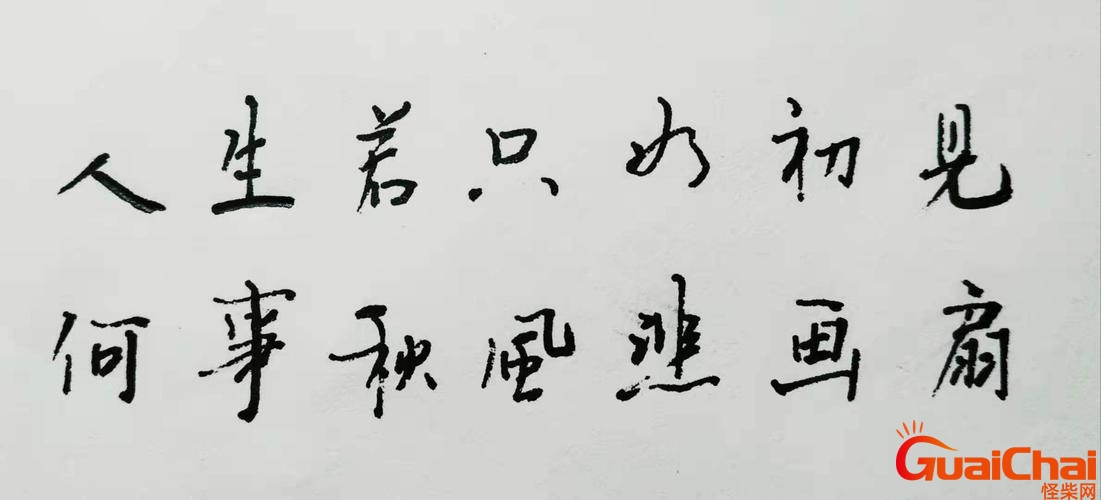 人生若只如初见
何事秋風悲画扇
GuaiChai
怪柴网